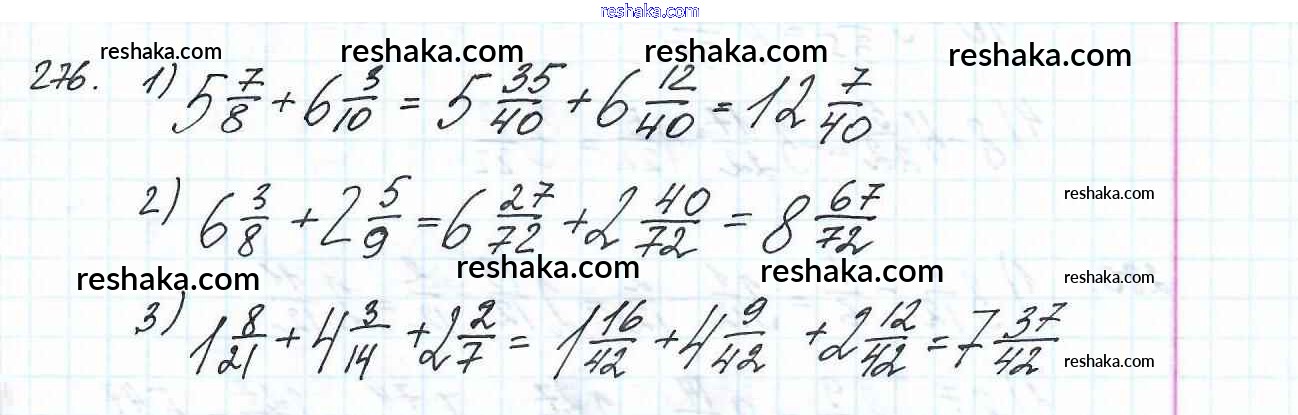 reshaka.com
reshaka.com reshaka.com reshaka.com reshaka.com
276. 1) 5 7/8 + 6 3/10 = 5 35/40 + 6 12/40 = 12 7/40
2) 6 3/8 + 2 5/9 = 6 27/72 + 2 40/72 = 8 67/72
reshaka.com
reshaka.com reshaka.com reshaka.com reshaka.com
3) 1 8/21 + 4 3/14 + 2 2/7 = 1 16/42 + 4 9/42 + 2 12/42 = 7 37/42
reshaka.com